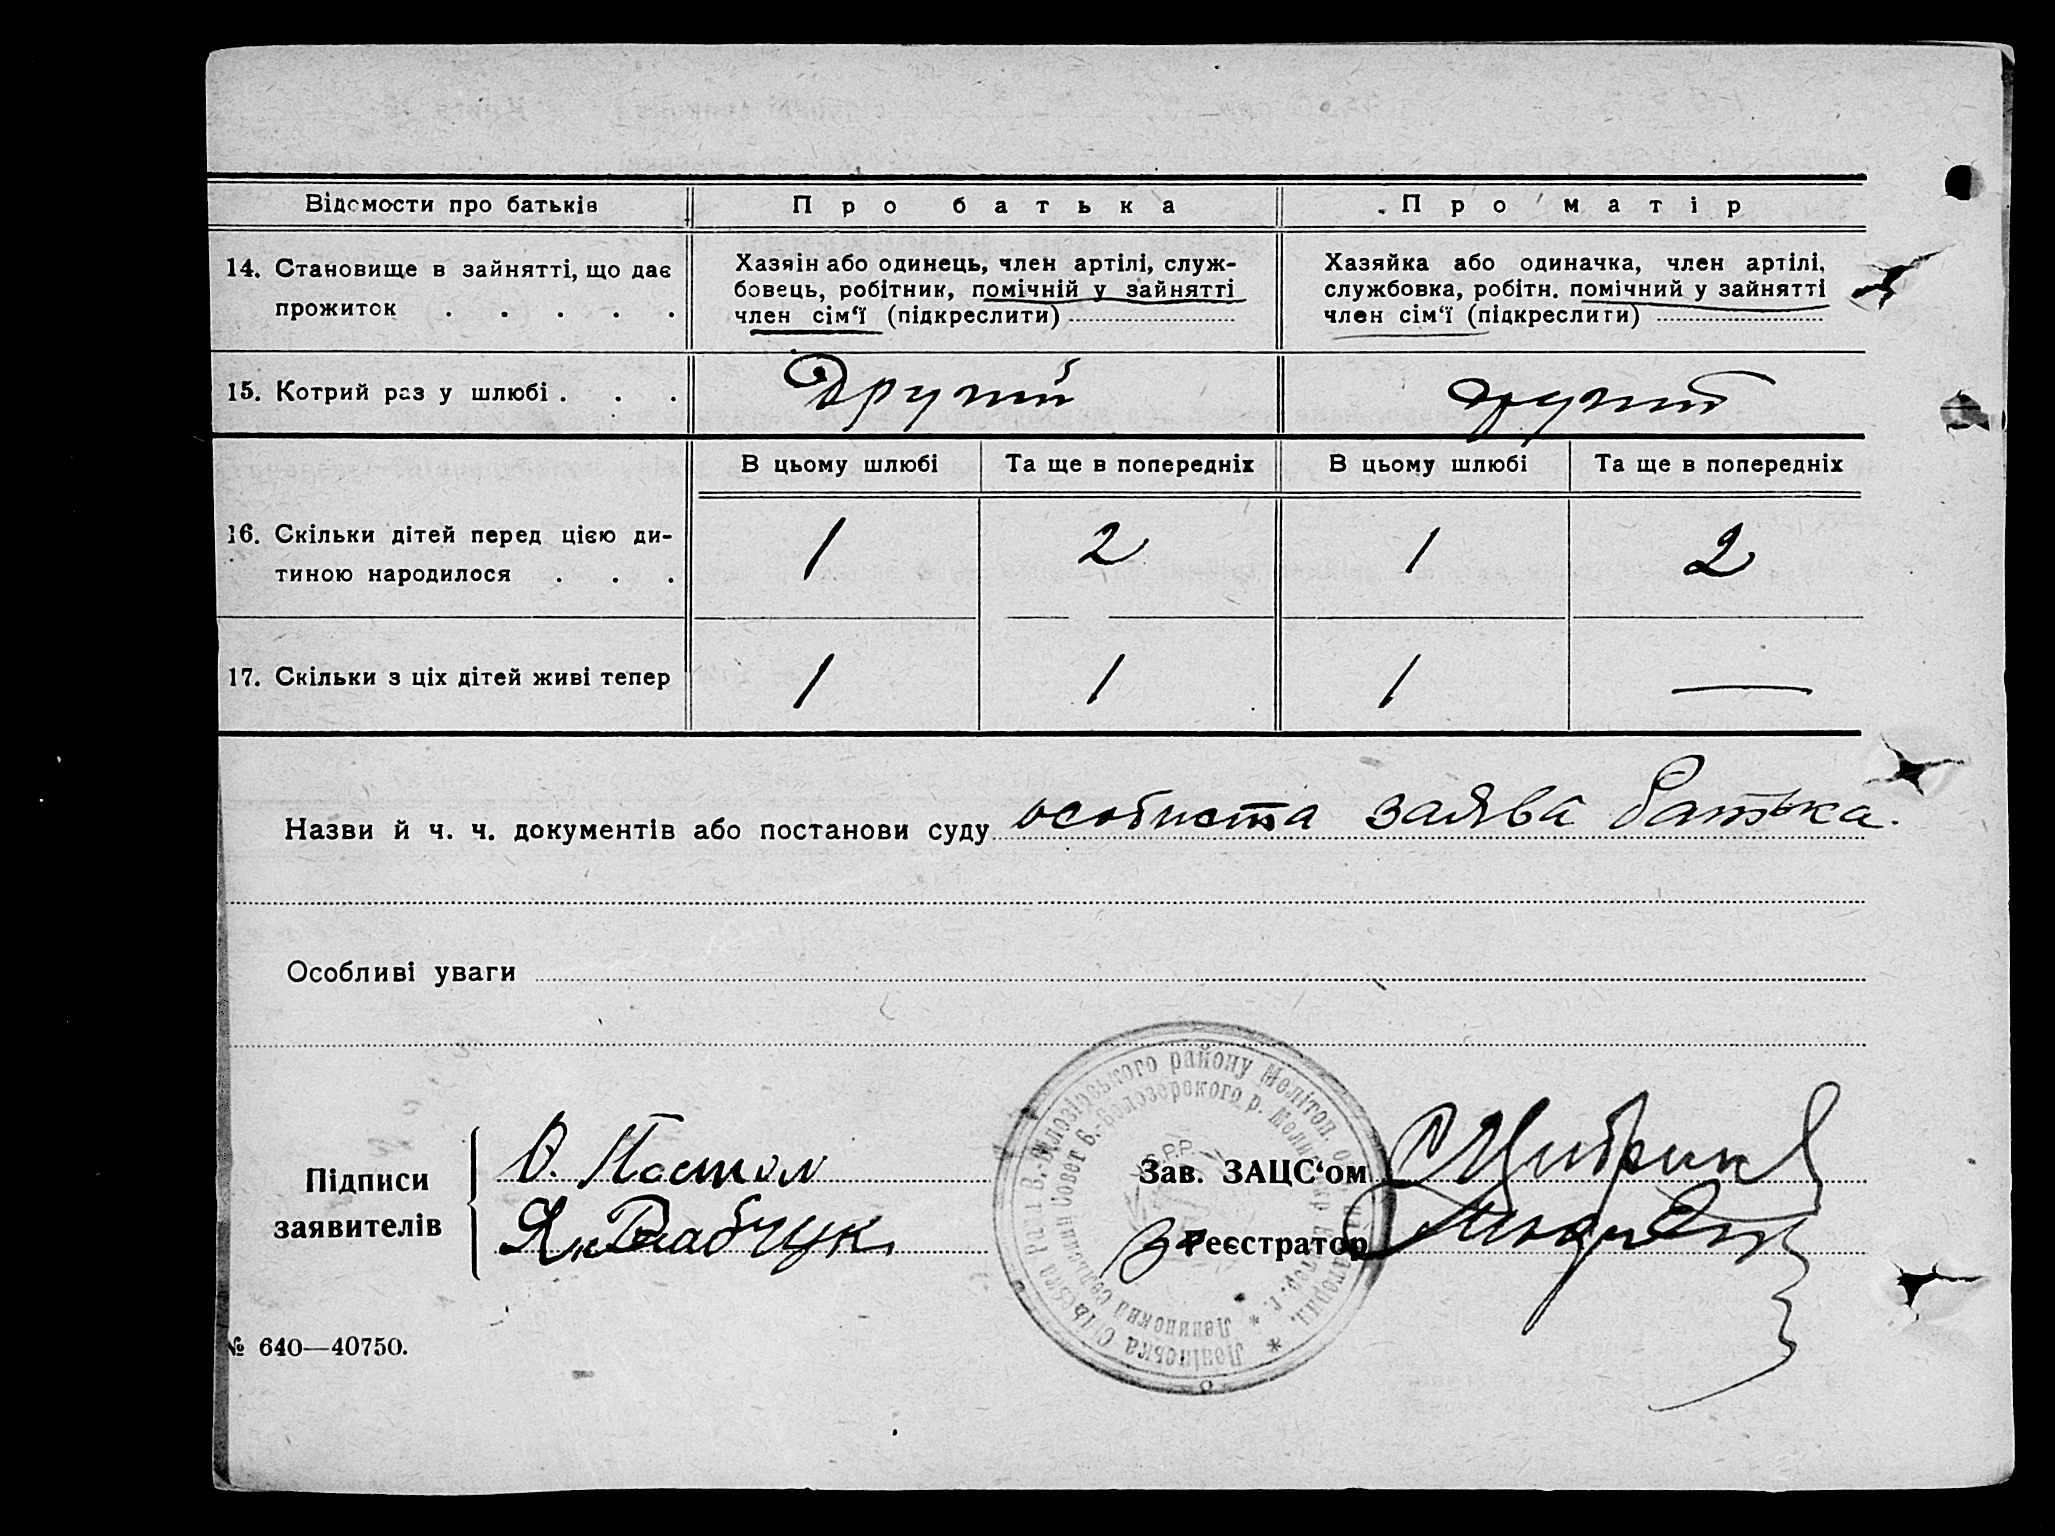 Відомости про батьків Про батька Про матір
14. Становище в зайнятті, що дає прожиток . . . . .
Хазяін або одинець, член артілі, служ-
бовець, робітник, помічній у зайнятті
член сім‘ї (підкреслити)
Хазяйка або одиначка, член артілі,
службовка, робітн. помічний у зайнятті
член сім‘ї (підкреслити)
15. Котрий раз у шлюбі . . . Другий другий
В цьому шлюбі Та ще в попередніх В цьому шлюбі Та ще в попередніх
16. Скільки дітей перед цією ди-
тиною народилося . . . 1 2 1 2
17. Скільки з ціх дітей живі тепер 1 1 1 —
Назви й ч. ч. документів або постанови суду особиста заява батька.
Особливі уваги
Підписи
заявителів
О. Постол
Зав. ЗАЦС‘ом
Реєстратор
№ 640—40750.
Ленінська Сільська Рада В.-Білозірського району Мелітоп. 
Ленинский сельский Совет Б.-Белозерского р.